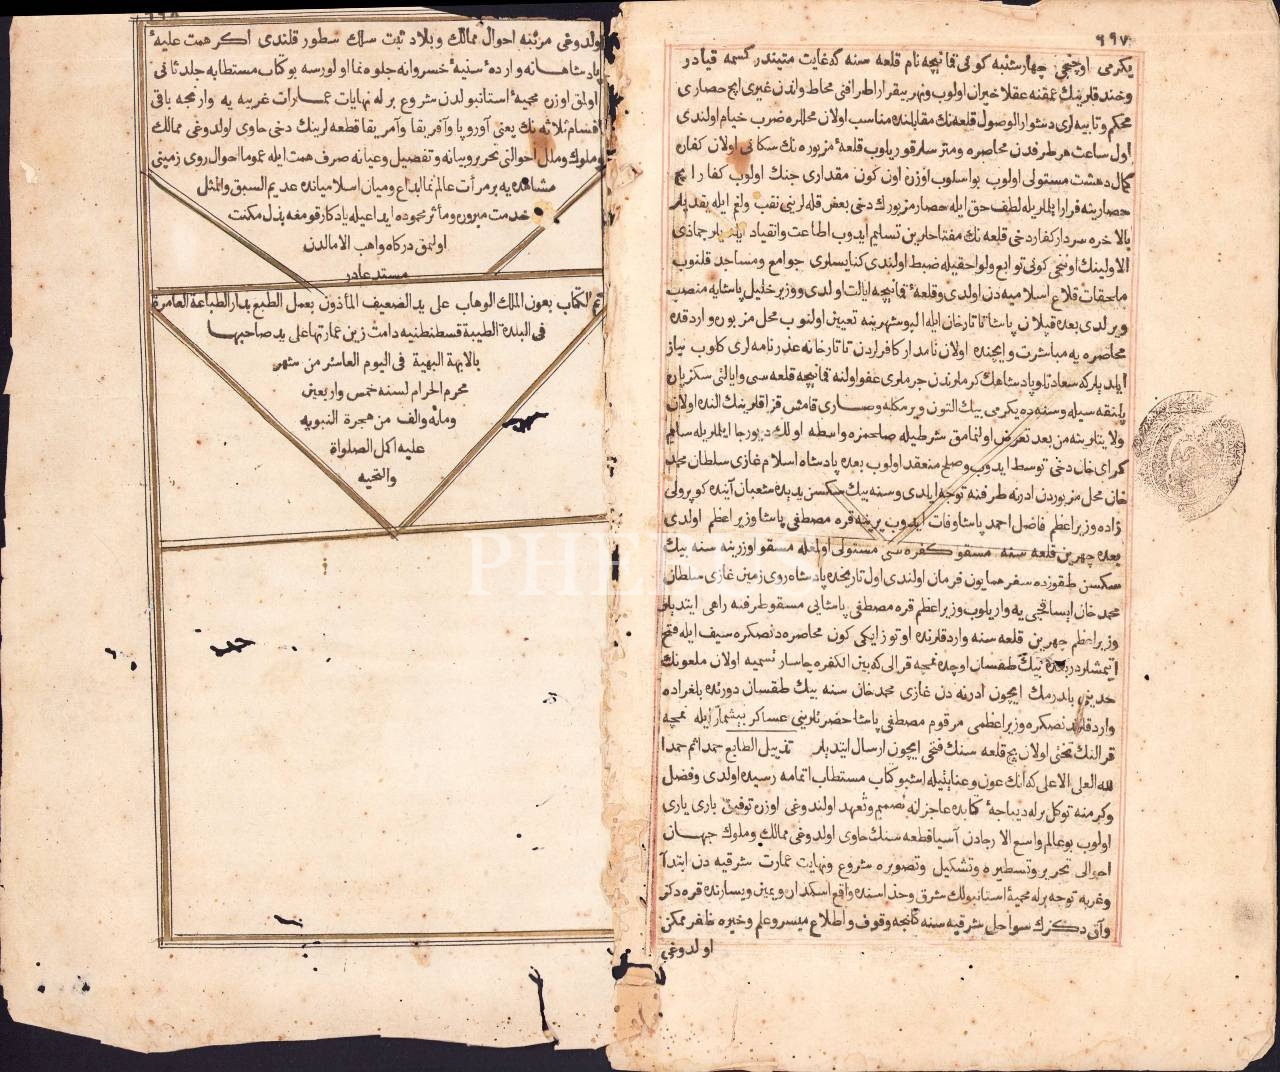 ٦٩٧
یكرمی اوچنجی چهارشنبه كونی قمانیچه نام قلعه سنه كه غایت متیندر كسمه قیادر
وخندقلرینك عمقنه عقلا حیران اولوب ونهر بیقرار اطرافنی محاط واندن غیری ایچ حصاری
محكم وتابیه لری دشوار الوصول قلعه نك مقابلنده مناسب اولان محللره ضرب خیام اولندی
اول ساعت هر طرفدن محاصره ومترسلر قوریلوب قلعهٔ مزبوره نك سكانی اولان كفار
كمال دهشت مستولی اولوب بو اسلوب اوزره اون كون مقداری جنك اولوب كفار ایچ
حصارینه فرار ایلدیلر لطف حق ایله حصار مزبورك دخی بعض قله لرینی نقب ولغم ایله
بالاخره سردار كفار دخی قلعه نك مفتاحلرین تسلیم ایدوب اطاعت وانقیاد ایلدیلر جماذی
الاولینك اونجی كونی توابع ولواحقیله ضبط اولندی كنایسلری جوامع ومساجد قلنوب
ملحقات قلاع اسلامیه دن اولدی وقلعهٔ قمانیچه ایالت اولدی ووزیر خلیل پاشایه منصب
ویرلدی بعده قپلان پاشا تاتارخان ایله البو شهرینه تعیین اولنوب محل مزبوره وارد قده
محاصره یه مباشرت وایچنده اولان نامدار كافرلردن تاتارخانه عذرنامه لری كلوب نیاز
ایلدیلركه سعادتلو پادشاهك كرملرندن جرملری عفو اولنه قمانیچه قلعه سی وایالتی سكز یان
پلنقه سیله وسنه ده یكرمی بیك التون ویرمكله وصاری قامش قزاقلرینك النده اولان
ولایتلرینه من بعد تعرض اولنمامق شرطیله صلحمزه واسطه اولك دیو رجا ایلدیلر سلیم
كرای خان دخی توسط ایدوب وصلح منعقد اولوب بعده پادشاه اسلام غازی سلطان محمد
خان محل مزبوردن ادرنه طرفنه توجه ایلدی وسنه بیك سكسن یدیده شعبان آینده كوپرولی
زاده وزیراعظم فاضل احمد پاشا وفات ایدوب یرینه قره مصطفی پاشا وزیر اعظم اولدی
بعده چهرین قلعه سنه مسقو كفره سی مستولی اولمغله مسقو اوزرینه سنه بیك
سكسن طقوزده سفر همایون فرمان اولندی اول تاریخده پادشاه روی زمین غازی سلطان
محمد خان ایساقجی یه واریلوب وزیراعظم قره مصطفی پاشایی مسقو طرفنه راهی ایتدیلر
وزیراعظم چهرین قلعه سنه واردقلرنده اوتوز ایكی كون محاصره دنصكره سیف ایله فتح
ایتمشلردر بعده بیك طقسان اوچده نمچه قرالی كه بین الكفره چاسار تسمیه اولان ملعونك
حدینی بلدرمك ایچون ادرنه دن غازی محمد خان سنه بیك طقسان دورتده بلغراده
واردقلرندنصكره وزیراعظمی مرقوم مصطفی پاشا حضرتلرینی عساكر بیشمار ایله نمچه
قرالنك تختی اولان بچ قلعه سنك فتحی ایچون ارسال ایتدیلر تذییل الطابع حمدا ثم حمدا
لله العلی الاعلی كه انك عون وعنایتیله اشبو كتاب مستطاب اتمامه رسیده اولدی وفضل
وكرمنه توكل برله دیباجهٔ كتابده عاجزانه تصمیم وتعهد اولندوغی اوزره توفیق باری یاری
اولوب بو عالم واسع الارجادن آسیا قطعه سنك حاوی اولدوغی ممالك وملوك جهان
احوالی تحریر وتسطیره وتشكیل وتصویره شروع ونهایت عمارت شرقیه دن ابتدا
وغربه توجه برله محمیهٔ استانبولك شرق وحذاسنده واقع اسكدار ویمین ویسارنده قره دكز
وآق دكزك سواحل شرقیه سنه كلنجه وقوف واطلاع میسر وعلم وخبره ظفر ممكن
اولدوغی
اولدوغی مرتبه احوال ممالك وبلاد ثبت سلك سطور قلندی اكر همت علیهٔ
پادشاهانه وارادهٔ سنیهٔ خسروانه جلوه نما اولورسه بو كتاب مستطابه جلد ثانی
اولمق اوزره محمیهٔ استانبولدن شروع برله نهایات عمارات غربیه یه وارنجه باقی
اقسام ثلاثه نك یعنی آوروپا وآفریقا وآمریقا قطعه لرینك دخی حاوی اولدوغی ممالك
وملوك وملل احوالنی تحریر وبیانه وتفصیل وعیانه صرف همت ایله عموما احوال روی زمینی
مشاهده یه بر مرأت عالمنما ابداع ومیان اسلامیانده عدیم السبق والمثل
خدمت مبروره ومأثر محموده ایداعیله یادكار قومغه بذل مكنت
اولنمق دركاه واهب الامالدن
مستدعادر
تم الكتاب بعون الملك الوهاب علی ید الضعیف المأذون بعمل الطبع بدار الطباعة العامرة
فی البلدة الطیبة قسطنطنیه دامت زین عمارتها علی ید صاحبها
بالابهة البهیة فی الیوم العاشر من شهر
محرم الحرام لسنه خمس واربعین
ومائه والف من هجرة النبویه
علیه اكمل الصلواة
والتحیه
PHEBUS